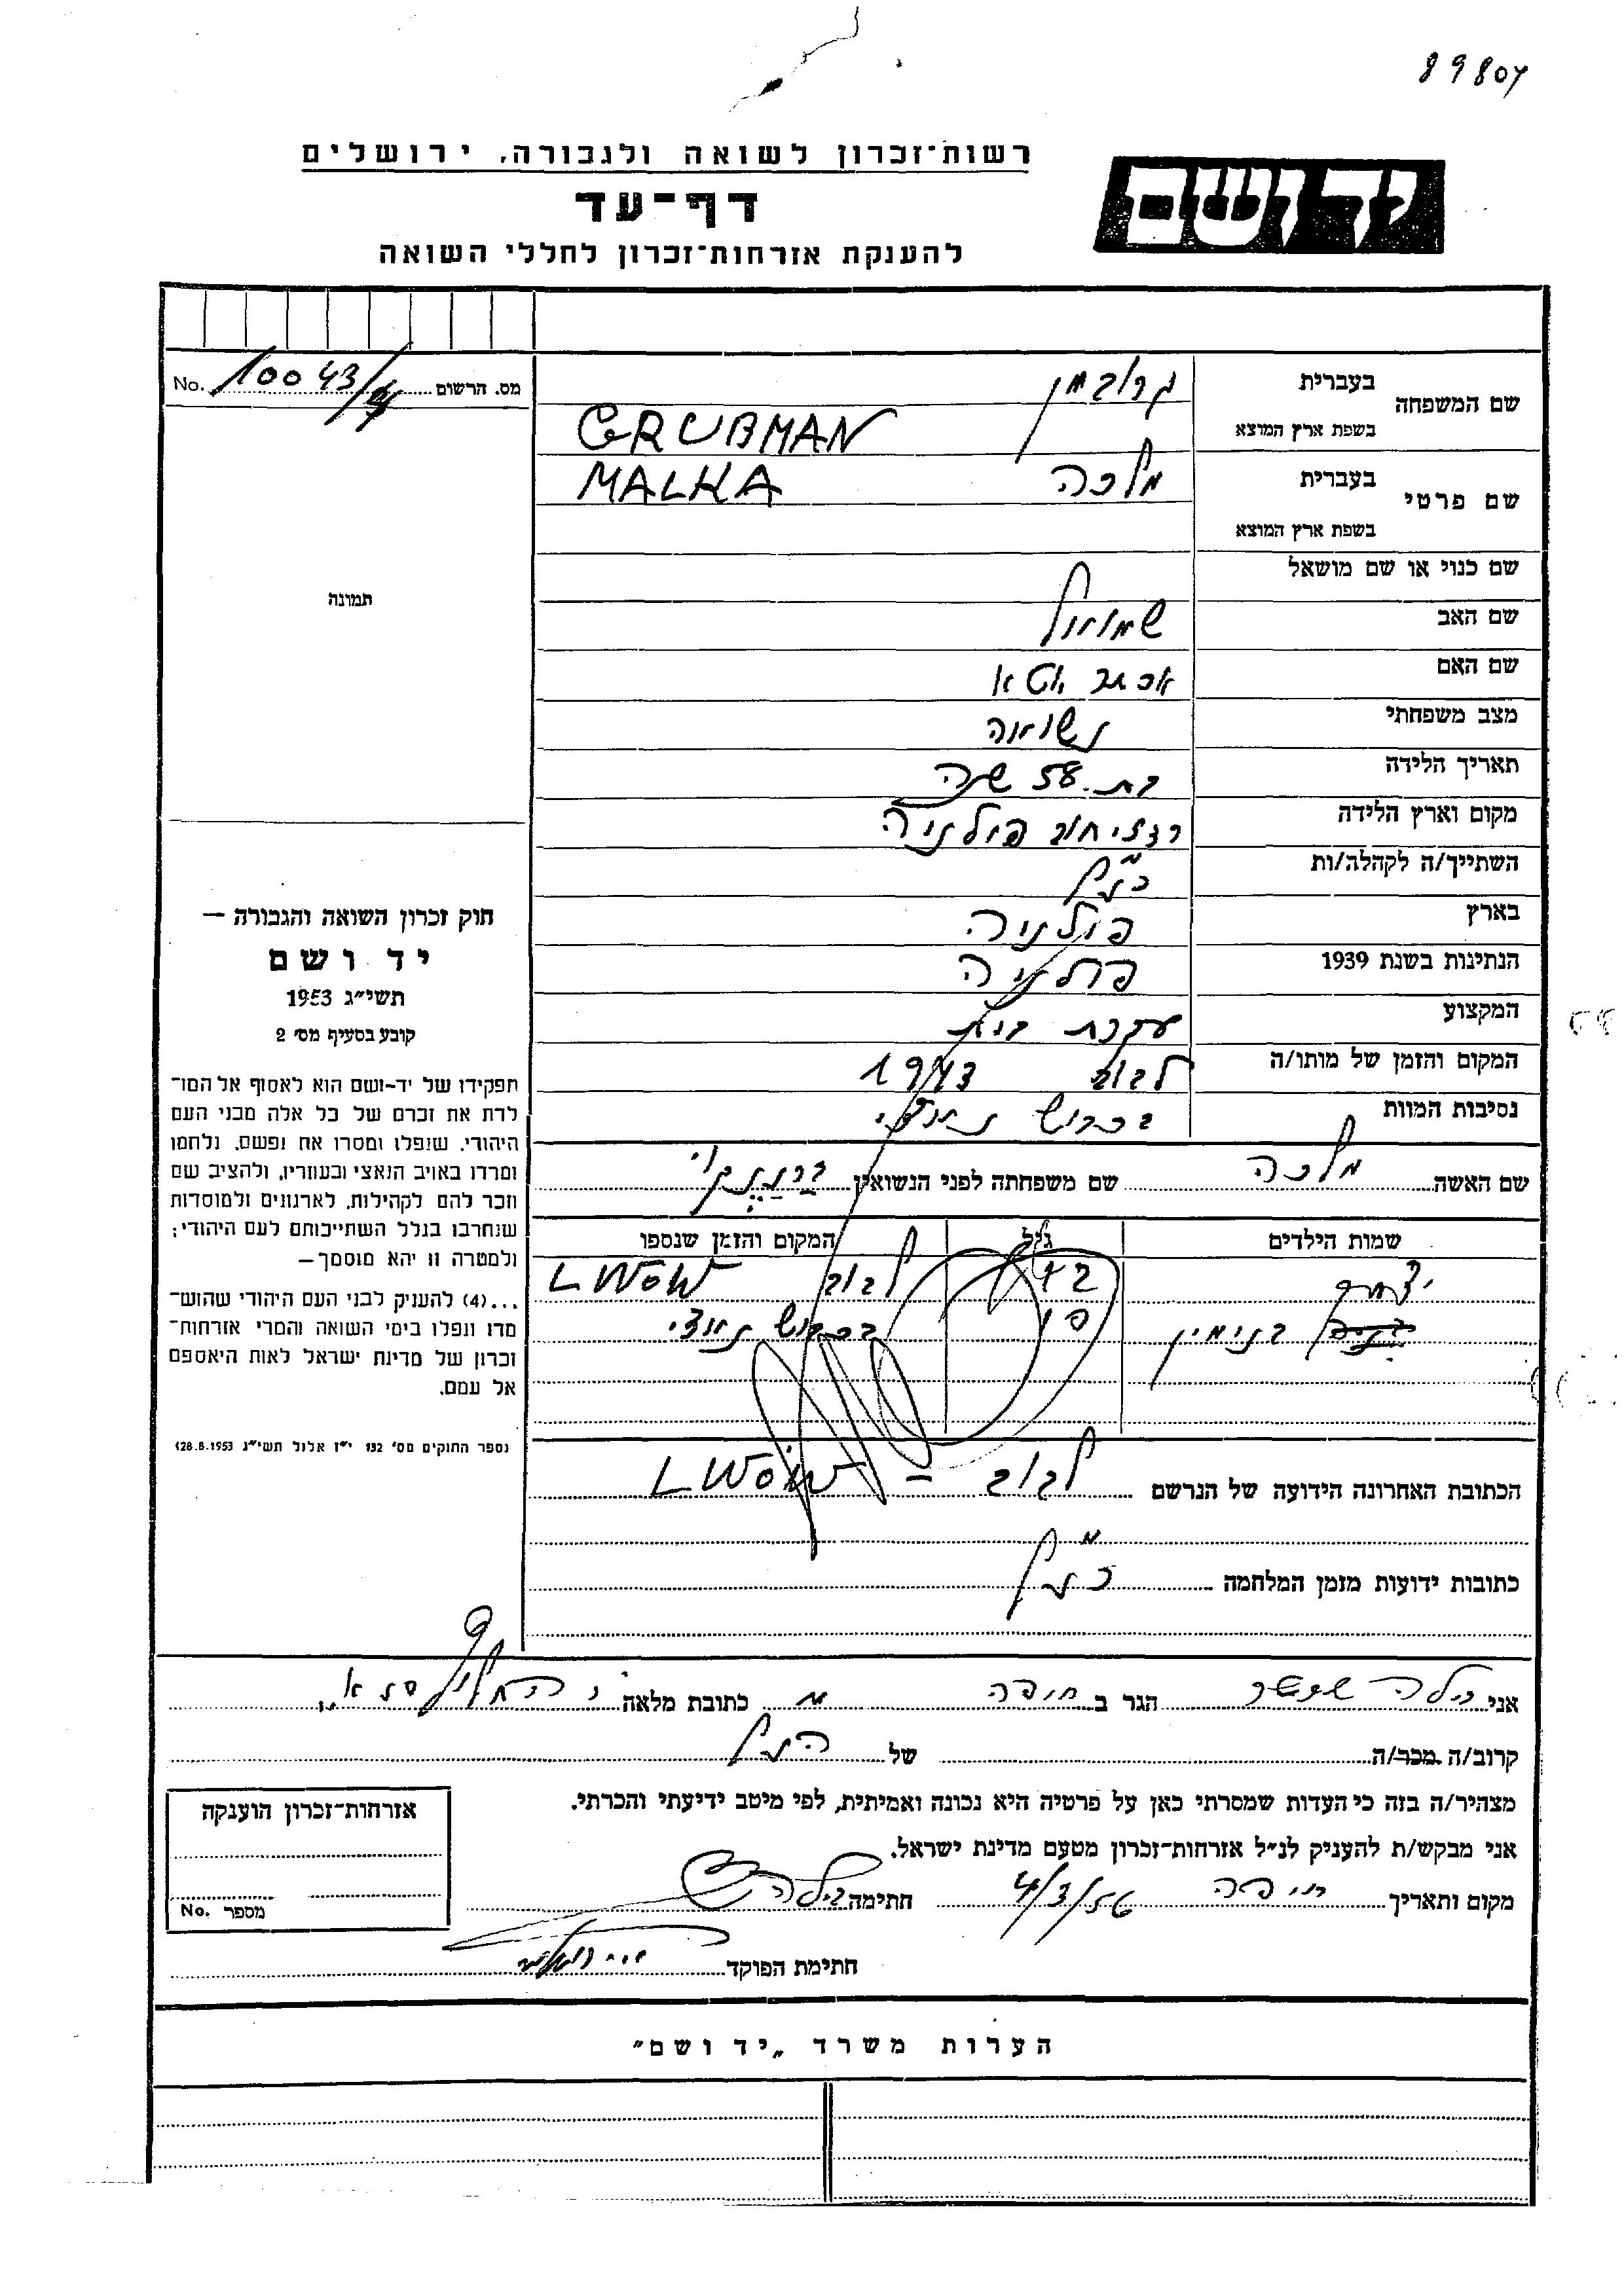 89804
רשות־זכרון לשואה ולגבורה, ירושלים
יד ושם
דף־עד
להענקת אזרחות־זכרון לחללי השואה
No. 10043/ מס. הרשום
שם המשפחה בעברית גרובמן
בשפת ארץ המוצא GRUBMAN
שם פרטי בעברית מלכה MALKA
בשפת ארץ המוצא
שם כנוי או שם מושאל
שם האב שמואל
שם האם
מצב משפחתי נשואה
תאריך הלידה בת 58 שנה
מקום וארץ הלידה פולניה
השתייך/ה לקהלה/ות כנ״ל
בארץ פולניה
הנתינות בשנת 1939 פולניה
המקצוע עקרת בית
המקום והזמן של מותו/ה לבוב 1943
נסיבות המוות בכבוש נאצי
שם האשה מלכה שם משפחתה לפני הנשואין
שמות הילדים גיל המקום והזמן שנספו
יצחק לבוב LWOW
בנימין בכבוש נאצי
הכתובת האחרונה הידועה של הנרשם לבוב - LWOW
כתובות ידועות מזמן המלחמה כנ״ל
תמונה
חוק זכרון השואה והגבורה —
יד ושם
תשי״ג 1953
קובע בסעיף מס׳ 2
תפקידו של יד-ושם הוא לאסוף אל המו־
לדת את זכרם של כל אלה מבני העם
היהודי, שנפלו ומסרו את נפשם, נלחמו
ומרדו באויב הנאצי ובעוזריו, ולהציב שם
וזכר להם לקהילות, לארגונים ולמוסדות
שנחרבו בגלל השתייכותם לעם היהודי;
ולמטרה זו יהא מוסמך—
...(4) להעניק לבני העם היהודי שהוש־
מדו ונפלו בימי השואה והמרי אזרחות־
זכרון של מדינת ישראל לאות היאספם
אל עמם.
(ספר החוקים מס׳ 132 י״ז אלול תשי״ג 28.8.1953)
אני הגר ב חיפה כתובת מלאה
קרוב/ה מכר/ה של הנ״ל
מצהיר/ה בזה כי העדות שמסרתי כאן על פרטיה היא נכונה ואמיתית, לפי מיטב ידיעתי והכרתי.
אני מבקש/ת להעניק לנ״ל אזרחות־זכרון מטעם מדינת ישראל.
מקום ותאריך חיפה 4/3/56 חתימה
חתימת הפוקד
אזרחות־זכרון הוענקה
מספר No.
הערות משרד „יד ושם"